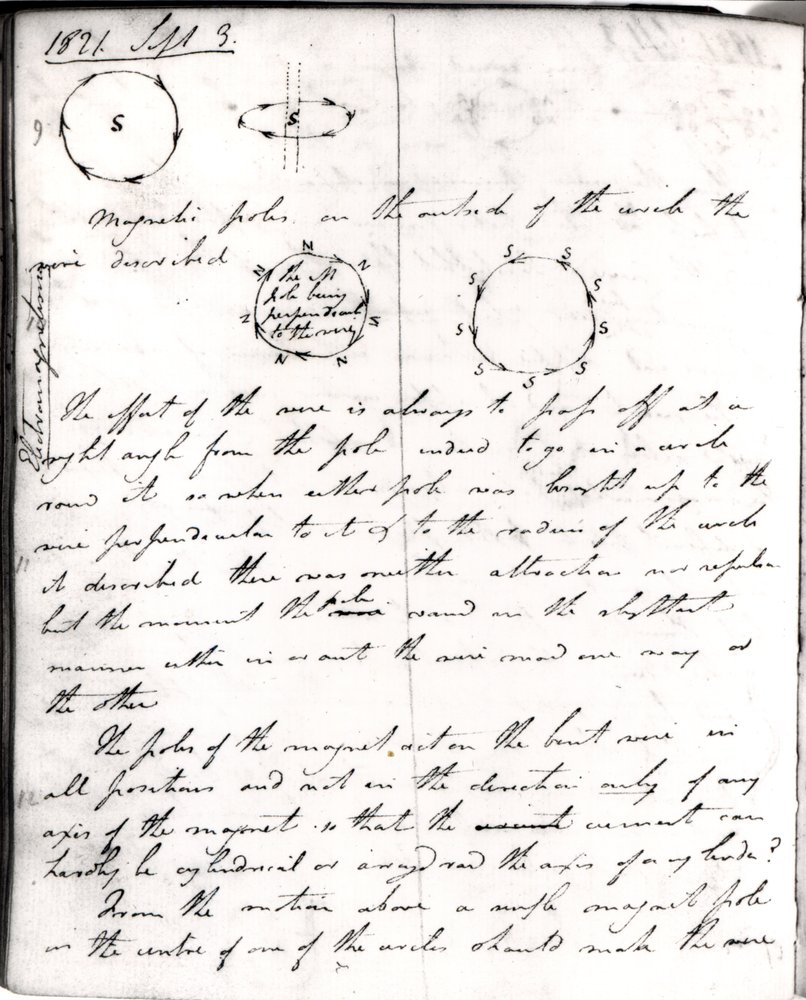 1821. Sept 3.
S
S
9
Magnetic poles on the outside of the circle the
wire described
N
N N
N N
N N
the M
pole being
perpendicular
to the wire
S S
S S
S S
S S S
Electromagnetism
The effort of the wire is always to pass off at a
right angle from the pole indeed to go in a circle
round it so when either pole was brought up to the
wire perpendicular to it & to the radius of the circle
11
it described there was neither attraction nor repulsion
but the moment the pole varied in the slightest
manner either in or out the wire moved one way or
the other
The poles of the magnet act on the bent wire in
all positions and not in the direction only of any
12
axis of the magnet so that the current can
hardly be cylindrical or arranged round the axis of a cylinder?
From the motion above a single magnet pole
in the centre of one of the circles should make the wire